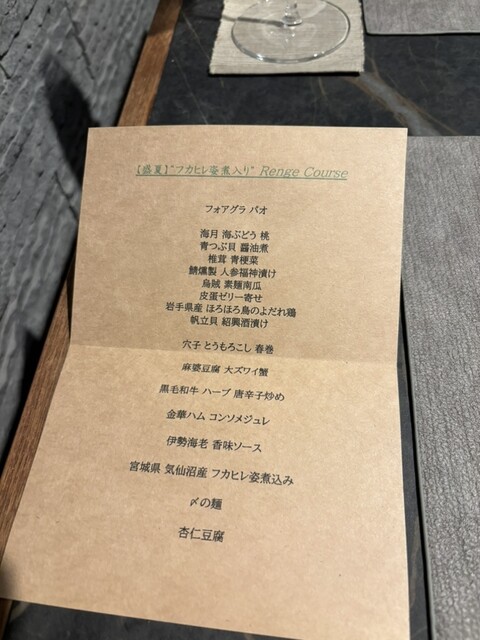 【盛夏】"フカヒレ姿煮入り" Renge Course
フォアグラ パオ
海月 海ぶどう 桃
青つぶ貝 醤油煮
椎茸 青梗菜
鯖燻製 人参福神漬け
烏賊 素麺南瓜
皮蛋ゼリー寄せ
岩手県産 ほろほろ鳥のよだれ鶏
帆立貝 紹興酒漬け
穴子 とうもろこし 春巻
麻婆豆腐 大ズワイ蟹
黒毛和牛 ハーブ 唐辛子炒め
金華ハム コンソメジュレ
伊勢海老 香味ソース
宮城県 気仙沼産 フカヒレ姿煮込み
〆の麺
杏仁豆腐